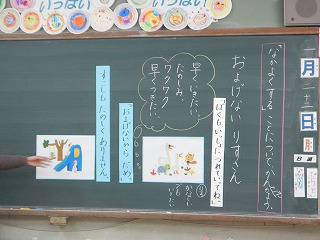 いっぱい
いっぱい
なかよくすることについてかんがえよう。
一月二十二日
日直
およげない りすさん
ぼくもいっしょにつれていってね。
早くいきたい。
たのしみ。
ワクワク
早くつきたい。
およげないから だめ。
すこしも たのしく ありません。